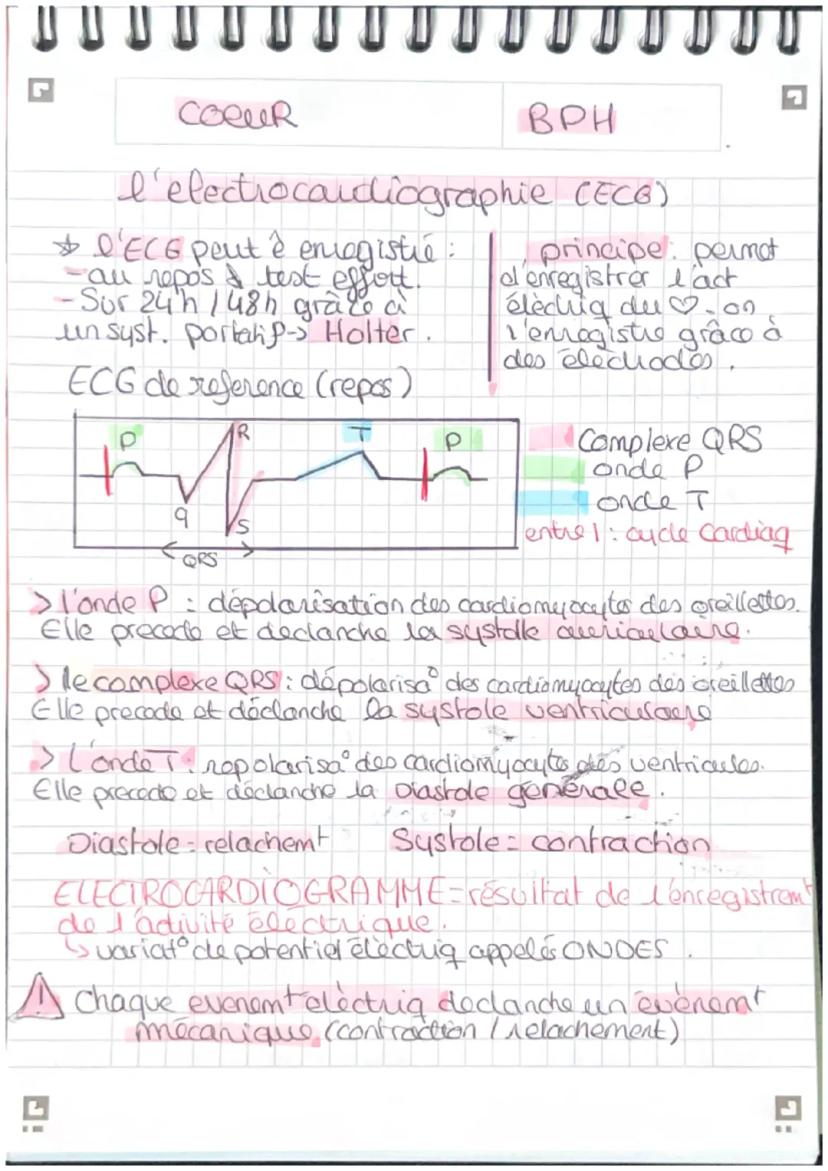 COEUR
BPH
l'electrocardiographie (ECG)
☆ l'ECG peut ê enregistré :
- au repos & test effort.
- Sur 24h / 48h grâce à
un syst. portatif -> Holter.
principe : permet
d'enregistrer l'act
électriq du ♡. on
l'enregistre grâce à
des électrodes.
ECG de reference (repos)
P
R
T
P
q
S
QRS
Complexe QRS
onde P
onde T
entre | : cycle cardiaq
> l'onde P : dépolarisation des cardiomyocytes des oreillettes.
Elle precede et declanche la systolle auriculaire.
> le complexe QRS : dépolarisa° des cardiomyocytes des oreillettes
Elle precede et déclanche la systole ventriculaire
> L'onde T : repolarisa° des cardiomyocyts des ventricules.
Elle precede et déclanche la Diastole génerale.
Diastole = relachemt Systole = contraction
ELECTROCARDIOGRAMME = résultat de l'enregistremt
de l'activité éléctrique.
↳ variat° de potentiel éléctriq appelés ONDES.
⚠ Chaque evenemt eléctriq declanche un evènemt
mécanique (contraction / relachement)